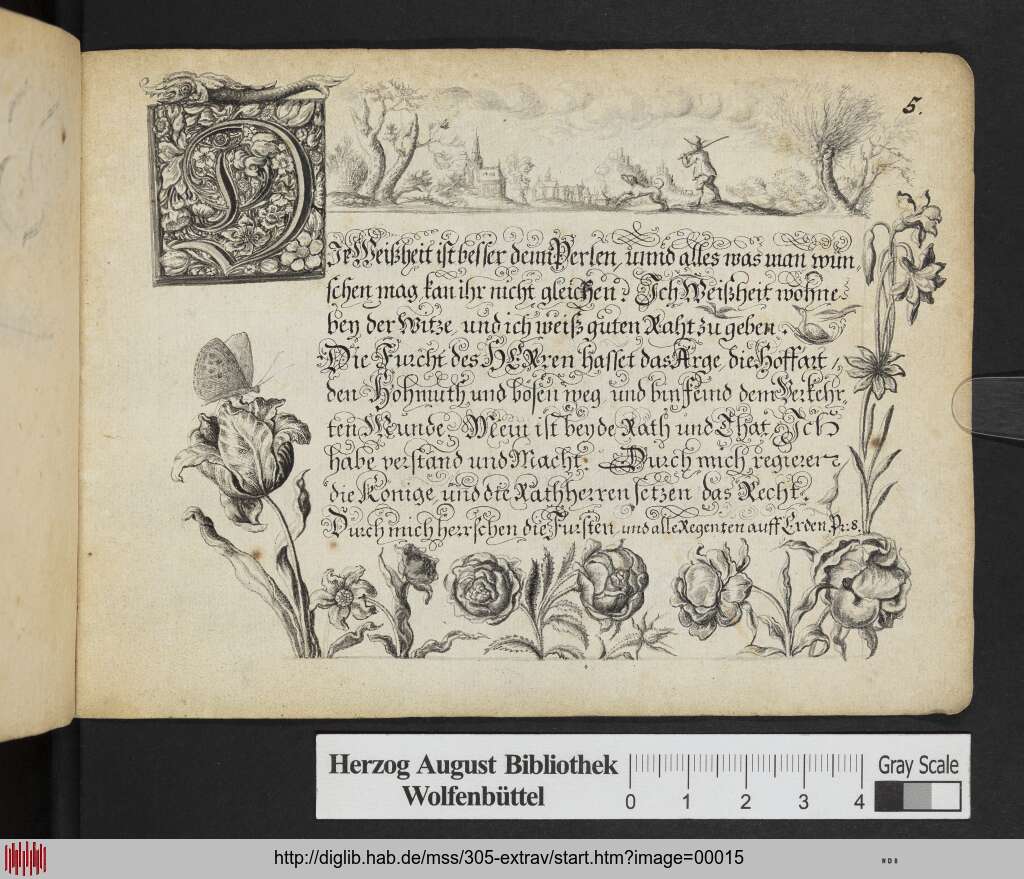 5.
DIe Weißheit ist besser denn Perlen, unnd alles was man wün,
schen mag, kan ihr nicht gleichen. Ich Weißheit wohne
bey der Witze, und ich weiß guten Raht zu geben.
Die Furcht des HERren hasset das Arge, die Hoffart,
den Hohmuth, und bösen weg, und bin feind dem Verkehr,
ten Munde. Mein ist beyde Rath und That, Ich
habe verstand und Macht. Durch mich regieren
die Könige, und die Rathherren setzen das Recht.
Durch mich herrschen die Fürsten, und alle Regenten auff Erden. Pr: 8.
Herzog August Bibliothek
Wolfenbüttel
0 1 2 3 4
Gray Scale
http://diglib.hab.de/mss/305-extrav/start.htm?image=00015